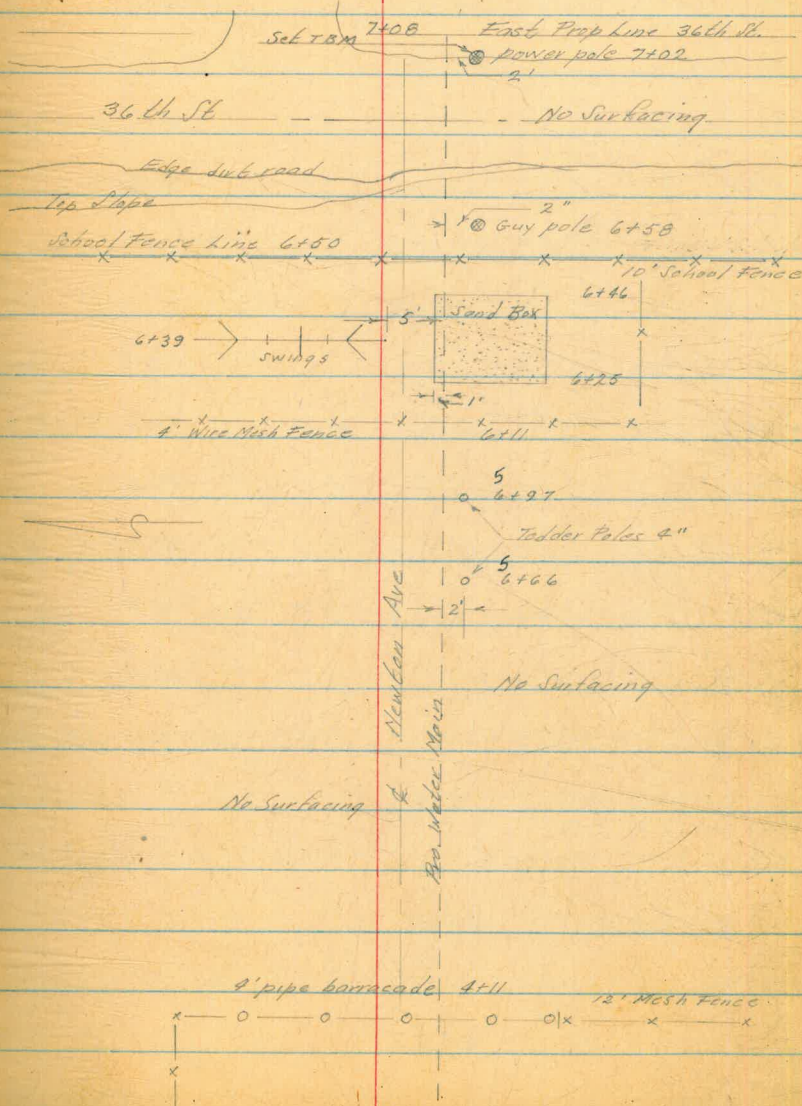 Set TBM 7+08 East Prop Line 36th St.
power pole 7+02
2'
36th St No Surfacing
Edge dirt road
Top Slope
2"
Guy pole 6+58
School Fence Line 6+50
10' School Fence
6+46
5' Sand Box
6+39
swings
6+25
1'
4' Wire Mesh Fence 6+11
5
6+97
Todder Poles 4"
5
6+66
2'
Newton Ave
No Surfacing
Pro. Water Main
No Surfacing
4' pipe barracade 4+11
12' Mesh Fence